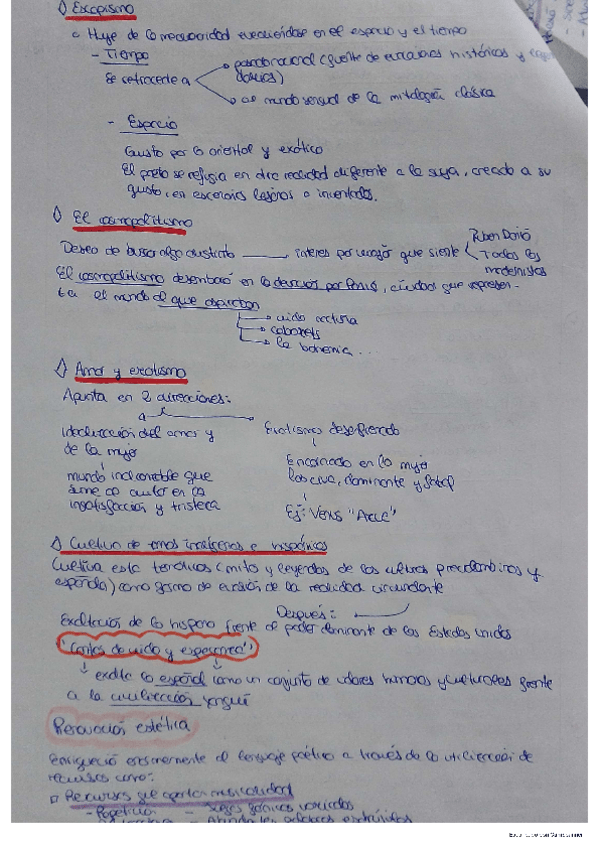 Escapismo
Huye de la mediocridad evadiéndose en el espacio y el tiempo
- Tiempo
Se retrocede a
pasado nacional (fuente de evocaciones históricos y
al mundo sensual de la mitología clásica
- Espacio
Gusto por lo oriental y exótico
El poeta se refugia en otra realidad diferente a la suya, creado a su
gusto, en escenarios lejanos o inventados.
El cosmopolitismo
Deseo de buscar algo distinto interés por viajar que siente
Ruben Darío
Todos los
modernistas
El cosmopolitismo desembocó en la devoción por París, ciudad que represen-
ta el mundo al que aspiraban
vida nocturna
cabarets
la bohemia...
Amor y erotismo
Apunta en 2 direcciones:
idealización del amor y
de la mujer
mundo inalcanzable que
sume al autor en la
insatisfacción y tristeza
Erotismo desenfrenado
Encarnado en la mujer
lasciva, dominante y fatal
Ej: Venus "Azul"
Cultivo de temas indígenas e hispánicos
Cultiva esta temática (mitos y leyendas de las culturas precolombinas y
española) como forma de evasión de la realidad circundante
Después:
Exaltación de lo hispano frente al poder dominante de los Estados Unidos
"Cantos de vida y esperanza"
exalta lo español como un conjunto de valores humanos y culturales frente
a la civilización yanqui
Renovación estética
Enriqueció enormemente el lenguaje poético a través de la utilización de
recursos como:
Recursos que aportan musicalidad
- Repetición